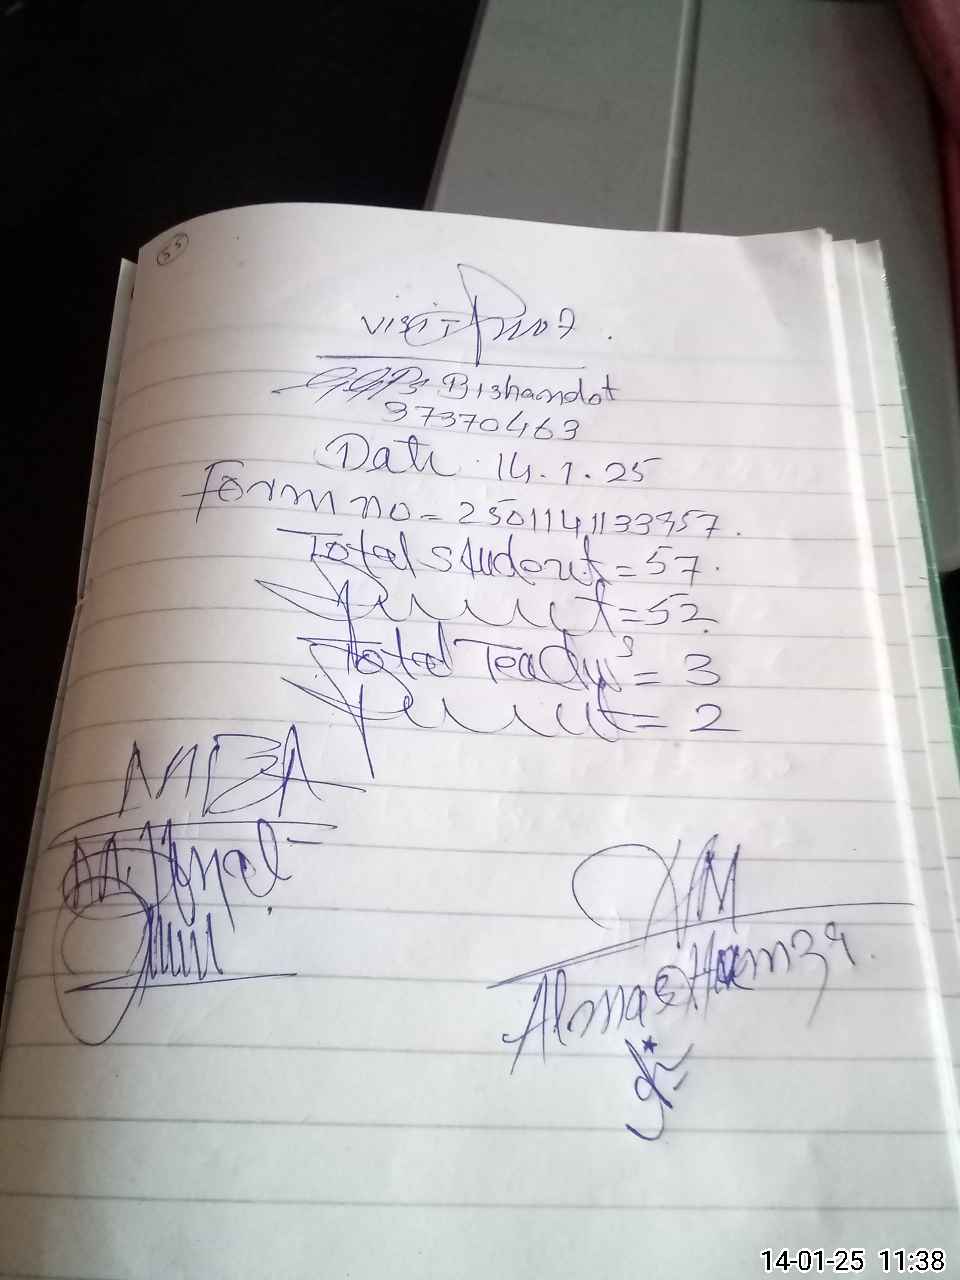 55
Visit Proof
GGPS Bishandot
37370463
Date 14.1.25
Form no = 250114113357.
Total student = 57.
Present = 52
Total Teachers = 3
Present = 2
MEA
M.
HM
Almas Hamza
14-01-25 11:38